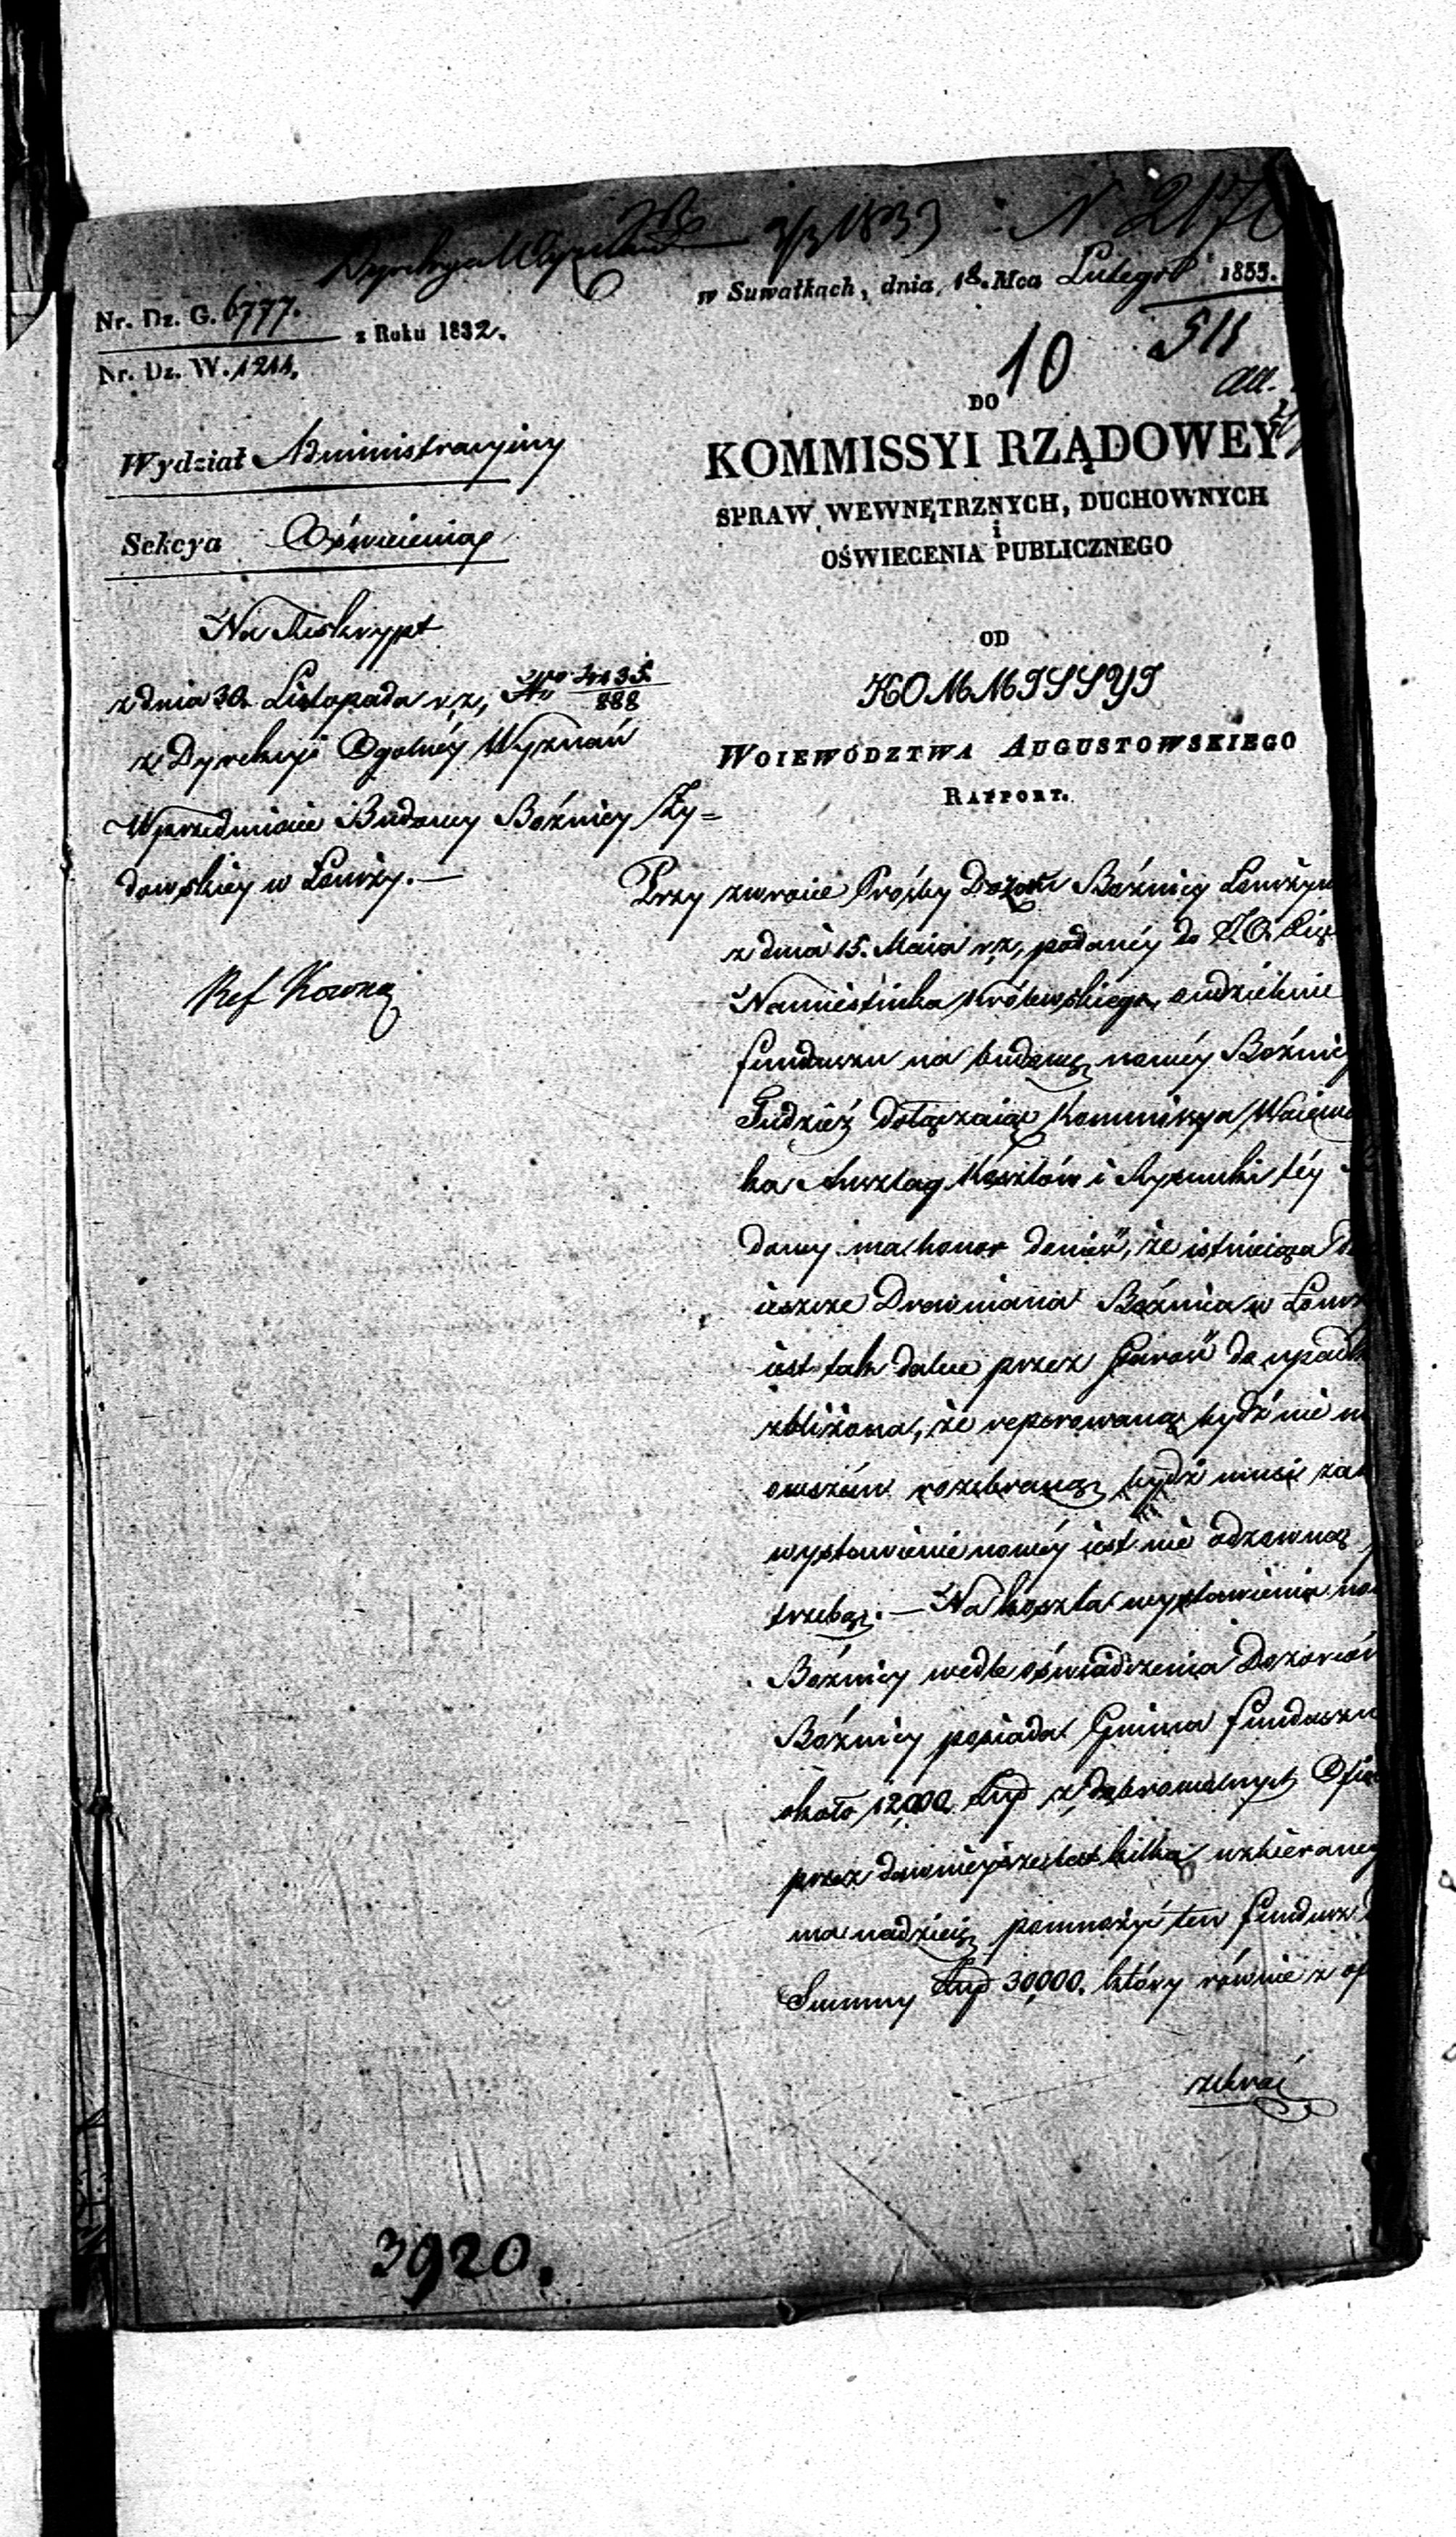 Dyrekcya Wyznań 3/3 1833 N 2170
w Suwałkach, dnia, 18. Mca Lutego 1833.
Nr. Dz. G. 6777.
z Roku 1832.
Nr. Dz. W. 1211.
10
511
all.
DO
KOMMISSYI RZĄDOWEY
SPRAW WEWNĘTRZNYCH, DUCHOWNYCH
i
OŚWIECENIA PUBLICZNEGO
OD
KOMMISSYI
WOIEWÓDZTWA AUGUSTOWSKIEGO
RAPPORT.
Wydział Administracyiny
Sekcya Oświecenia
Na Reskrypt
z dnia 30. Listopada r. z., Nro 4135/888
z Dyrekcyi Ogolnéy Wyznań
W przedmiocie Budowy Boźnicy Ży=
dowskiey w Łomży. —
Ref
Przy zwrocie Prośby Dozoru Boźnicy
z dnia 15. Maia r. z., podanéy do J.O.
Namiestnika Królewskiego, o udzielenie
funduszu na budowę nowéy Boźnicy
Tudzież dołączaiąc Kommissya
ka Anszlag Kosztów i Rysunki téy
dowy ma honor donieść, że istnieiąca
ieszcze Drewniana Boźnica w
iest tak dalece przez starość do
zbliżona, że reperowaną bydź nie
owszem rozebraną bydź musi
wystawienie nowéy iest nie odzowną
trzebą. — Na koszta wystawienia
Boźnicy wedle oświadczenia Dozorców
Boźnicy posiada Gmina funduszu
około 12,000 złp z dobrowolnych
przez dawnieysze lat kilka
ma nadzieię pomnożyć ten fundusz
Summy złp 30,000. który równie z
zebrać
3920.